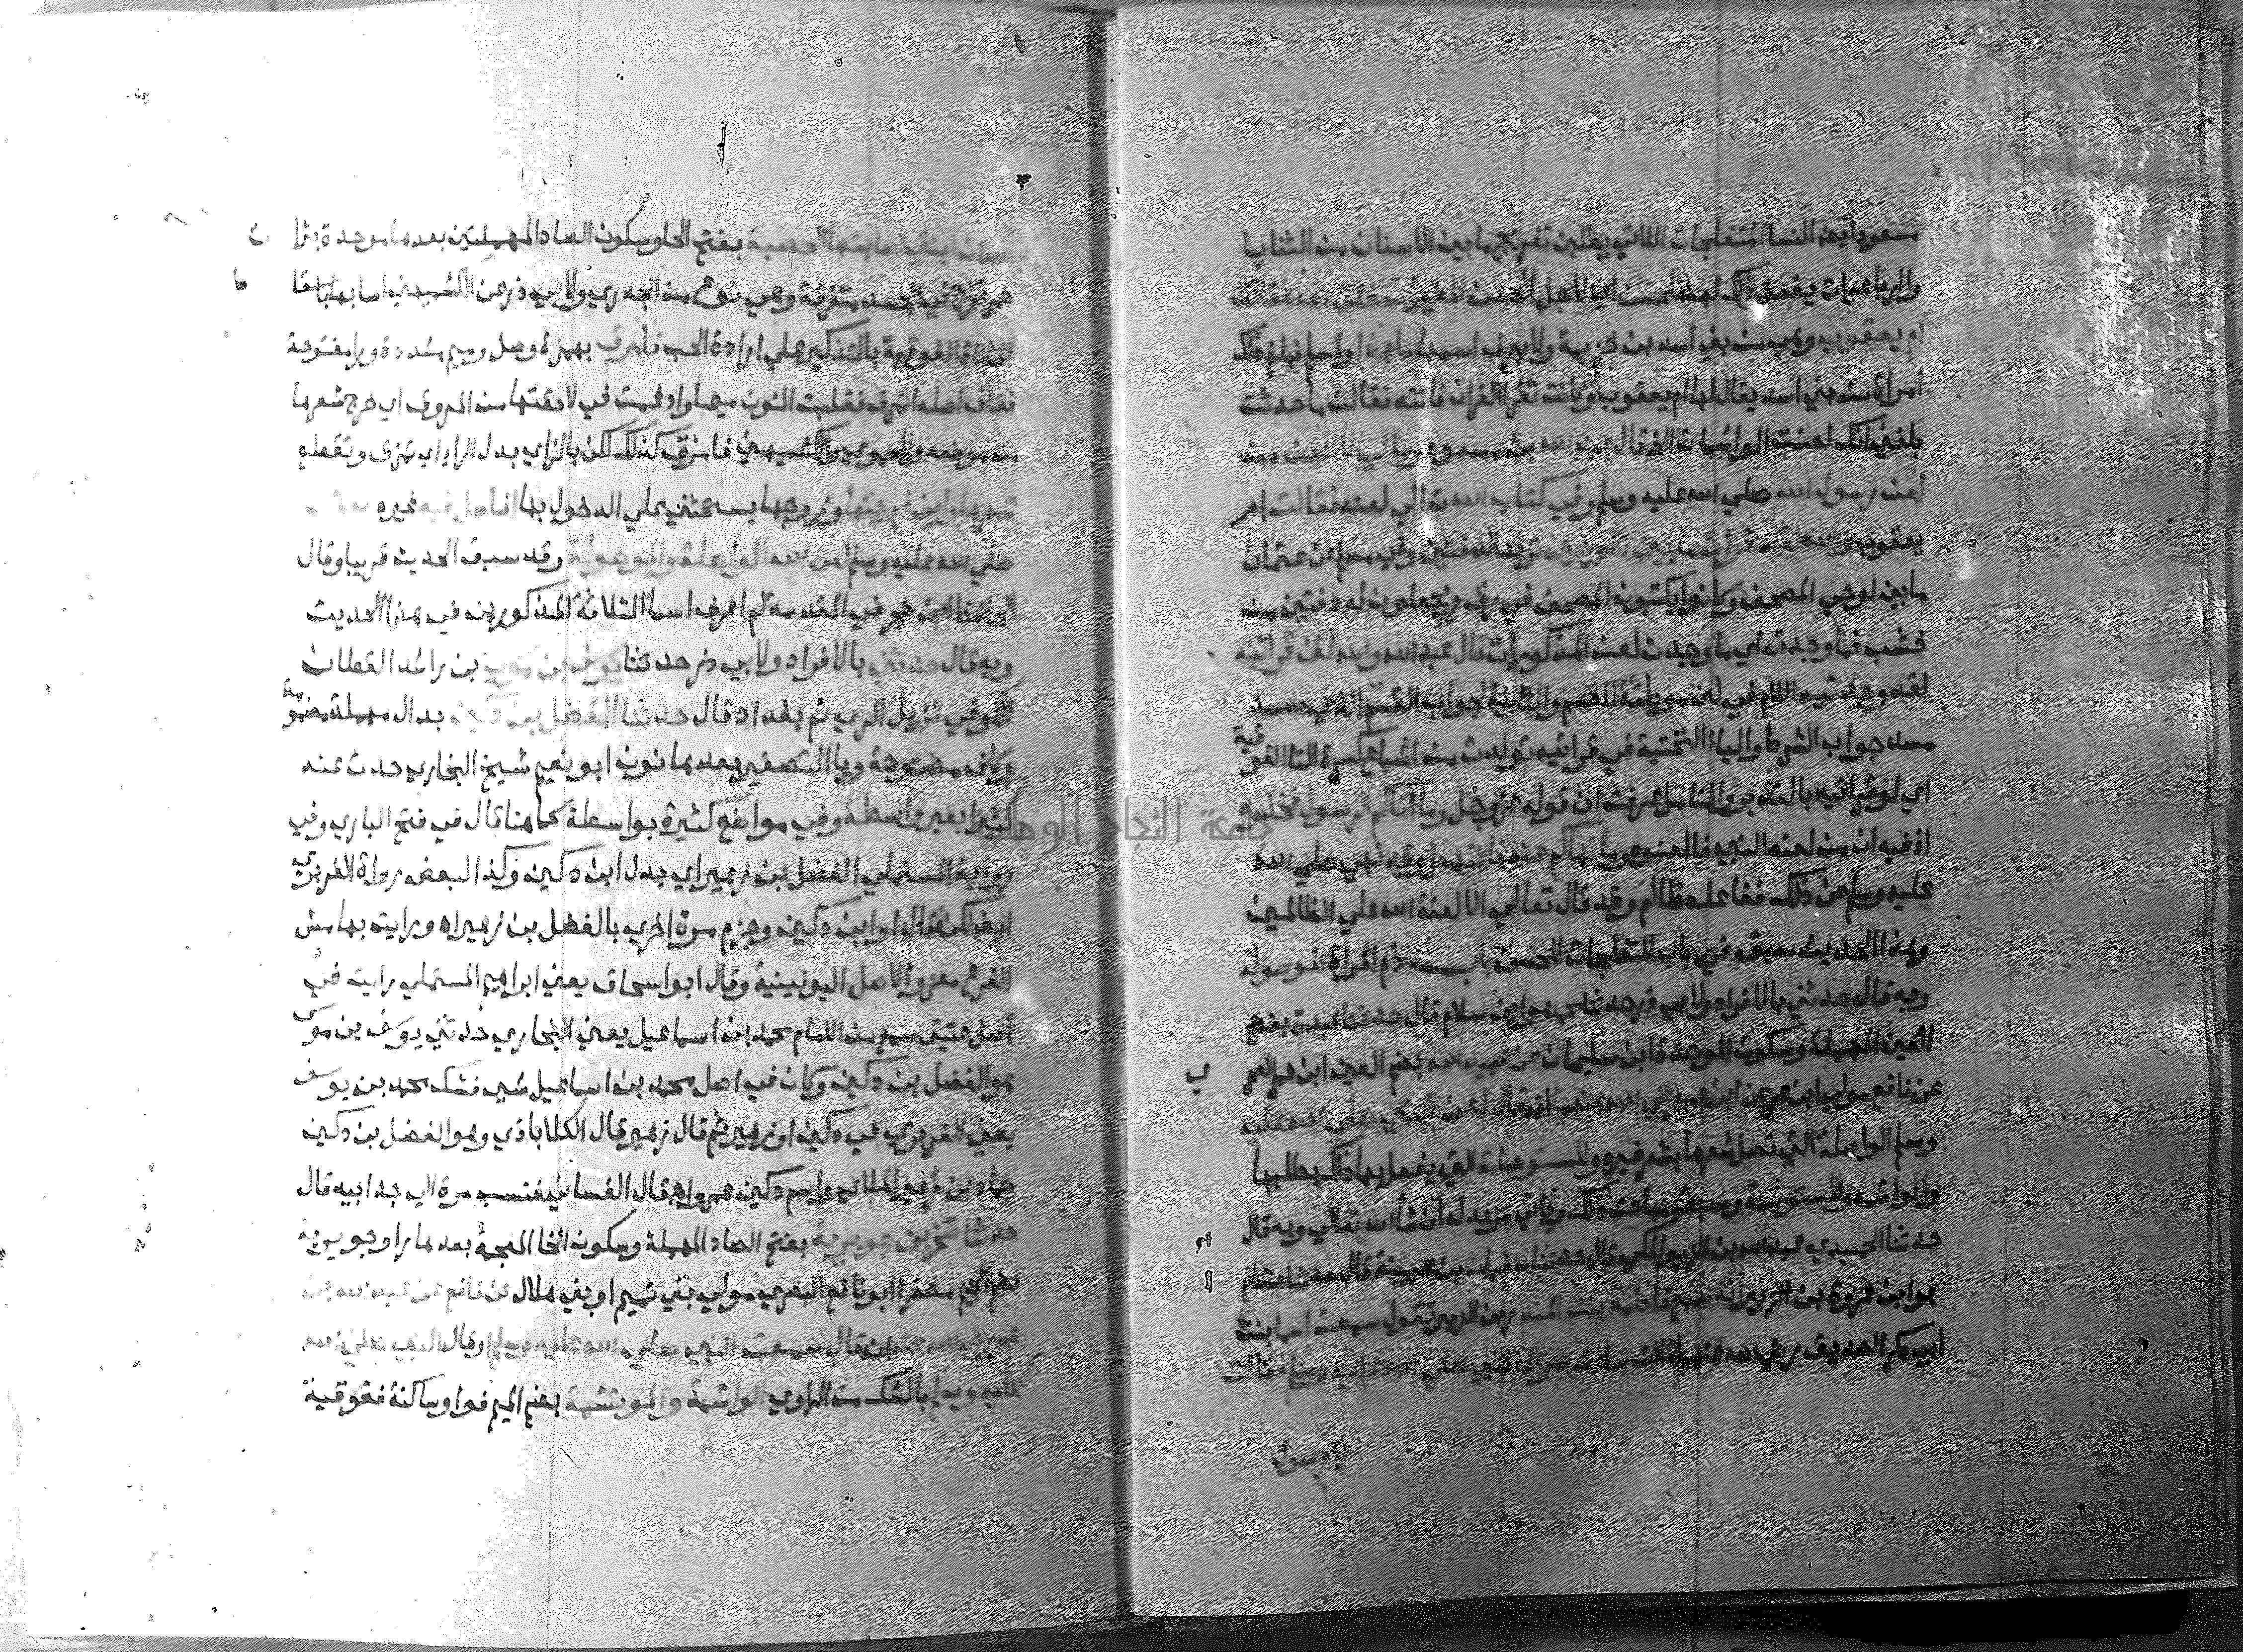 مسعود ايضا النسا المتفلجات اللاتي يطلبن تفريج ما بين الاسنان من الثنايا
والرباعيات يفعلن ذلك لهذه للحسن اي لاجل الحسن المغيرات خلق الله فقالت
ام يعقوب وهي من بني اسد بن خزيمة ولا يعرف اسمها ما هذا ولمسلم فبلغ ذلك
امراة من بني اسد يقال لها ام يعقوب وكانت تقرا القران فاتته فقالت ما حديث
بلغني انك لعنت الواشمات الخ قال عبد الله بن مسعود وما لي لا العن من
لعن رسول الله صلي الله عليه وسلم وفي كتاب الله تعالي لعنه فقالت ام
يعقوب والله لقد قرات ما بين اللوحين تريد الدفتين وفي مسلم عن عثمان
ما بين لوحي المصحف وكانوا يكتبون المصحف في رق ويجعلون له دفتين من
خشب فما وجدته اي ما وجدت لعن المذكورات قال عبد الله والله لئن قراتيه
لقد وجدتيه اللام في لئن موطئة للقسم والثانية لجواب القسم الذي سد
مسد جواب الشرط والياء التحتية في قراتيه تولدت من اشباع كسرة التا الفوقية
اي لو قراتيه بالتدبر والتامل لعرفت ان قوله عز وجل وما اتاكم الرسول فخذوه
اذ فيه ان من لعنه النبي فالعنوه وما نهاكم عنه فانتهوا وقد نهي صلي الله
عليه وسلم عن ذلك ففاعله ظالم وقد قال تعالي الا لعنة الله علي الظالمين
وهذا الحديث سبق في باب المتفلجات للحسن باب ذم المراة الموصولة
وبه قال حدثني بالافراد ولابي ذر حدثنا محمد هو ابن سلام قال حدثنا عبدة بفتح
العين المهملة وسكون الموحدة ابن سليمان عن عبيد الله بضم العين ابن عمر العمري
عن نافع مولي ابن عمر عن ابن عمر رضي الله عنهما انه قال لعن النبي صلي الله عليه
وسلم الواصلة التي تصل شعرها بشعر غيره والمستوصلة التي يفعل بها ذلك بطلبها
والواشمة والمستوشمة وسبق مباحث ذلك وياتي مزيد له ان شا الله تعالي وبه قال
حدثنا الحميدي عبد الله بن الزبير المكي قال حدثنا سفيان بن عيينة قال حدثنا هشام
هو ابن عروة بن الزبير انه سمع فاطمة بنت المنذر بن الزبير تقول سمعت اسما بنت
ابي بكر الصديق رضي الله عنهما قالت سالت امراة النبي صلي الله عليه وسلم فقالت
يا رسول
ان ابنتي اصابتها الحصبة بفتح الحا وسكون الصاد المهملتين بعدها موحدة بثرات
حمر تخرج في الجسد متفرقة وهي نوع من الجدري ولابي ذر عن الكشميهني اصابها باسقاط
المثناة الفوقية بالتذكير علي ارادة الحب فامرق بهمزة وصل وميم مشددة ورا مفتوحة
فقاف اصله انمرق فقلبت النون ميما وادغمت في لاحقتها من المروق اي خرج شعرها
من موضعه وللحموي والكشميهني فامزق كذلك لكن بالزاي بدل الرا اي تمزق وتقطع
شعرها واني زوجتها وزوجها يستحثني علي الدخول بها افاصل فيه غيره
صلي الله عليه وسلم لعن الله الواصلة والموصولة وقد سبق الحديث قريبا وقال
الحافظ ابن حجر في المقدمة لم اعرف اسما الثلاثة المذكورين في هذا الحديث
وبه قال حدثني بالافراد ولابي ذر حدثنا يوسف بن موسي بن راشد القطان
الكوفي نزيل الري ثم بغداد قال حدثنا الفضل بن دكين بدال مهملة مضمومة
وكاف مفتوحة ويا التصغير بعدها نون ابو نعيم شيخ البخاري حدث عنه
كثيرا بغير واسطة وفي مواضع كثيرة بواسطة كما هنا قال في فتح الباري وفي
رواية المستملي الفضل بن زهير اي بدل ابن دكين وكذا لبعض رواة الفربري
ايضا لكن قال او ابن دكين وجزم مرة اخري بالفضل بن زهير اه ورايت بهامش
الفرع معزوا لاصل اليونينية وقال ابو اسحاق يعني ابراهيم المستملي رايت في
اصل عتيق سمع من الامام محمد بن اسماعيل يعني البخاري حدثني يوسف بن موسي
هو الفضل بن دكين وكان في اصل محمد بن اسماعيل شي فشك محمد بن يوسف
يعني الفربري في دكين او زهير ثم قال زهير قال الكلاباذي وهو الفضل بن دكين
حماد بن زهير الملاي واسم دكين عمرو اه قال الغساني فنسب مرة الي جد ابيه قال
حدثنا صخر بن جويرية بفتح الصاد المهملة وسكون الخا المعجمة بعدها را وجويرية
بضم الجيم مصغرا ابو نافع البصري مولي بني تميم او بني هلال عن نافع عن عبد الله بن
عمر رضي الله عنه انه قال سمعت النبي صلي الله عليه وسلم او قال النبي صلي الله
عليه وسلم بالشك من الراوي الواشمة والموتشمة بضم الميم فواو ساكنة ففوقية
جامعة النجاح الوطنية